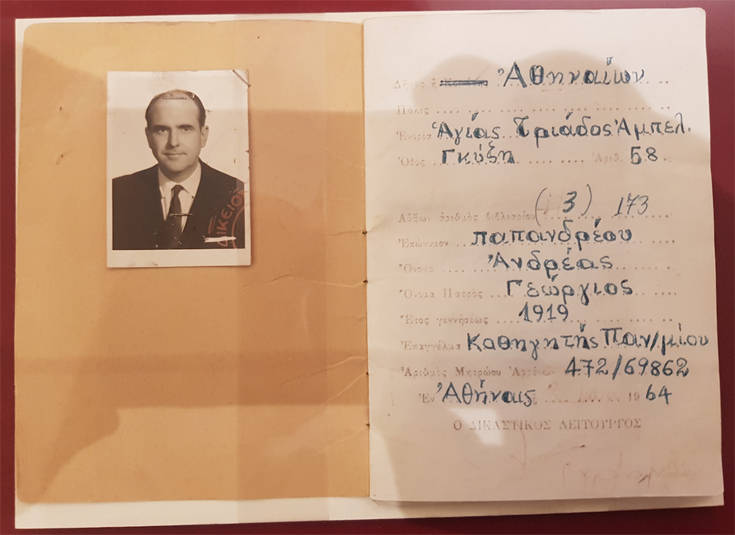 ΔΙΚΕΙΟΝ
Ἀθηναίων
Πόλις
Ἐνορία Ἁγίας Τριάδος Ἀμπελ.
Ὁδὸς Γκύζη Ἀριθ. 58
Αὔξων ἀριθμὸς βιβλιαρίου (3) 173
Ἐπώνυμον Παπανδρέου
Ὄνομα Ἀνδρέας
Ὄνομα Πατρὸς Γεώργιος
Ἔτος γεννήσεως 1919
Ἐπάγγελμα Καθηγητής Παν/μίου
Ἀριθμὸς Μητρώου 472/69862
Ἐν Ἀθήναις 1964
Ο ΔΙΚΑΣΤΙΚΟΣ ΛΕΙΤΟΥΡΓΟΣ